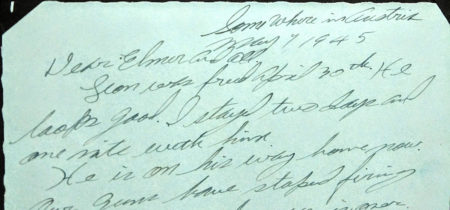 Some Where in Austria
May 7 1945
Dear Elmer and all
Leon was fried April 30th. He
looks good. I stayd two days and
one nite with him.
He is on his way home now.
Our guns have stoped firing
is over.